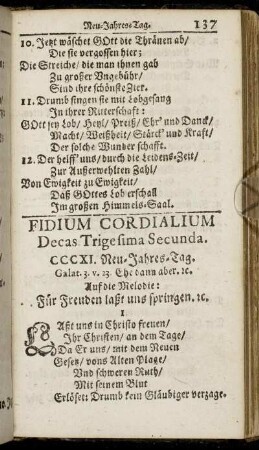 Neu-Jahres-Tag. 137
10. Jetzt wäschet GOtt die Thränen ab/
Die sie vergossen hier;
Die Streiche/ die man ihnen gab
Zu großer Vngebühr/
Sind ihre schönste Zier.
11. Drumb singen sie mit Lobgesang
In ihrer Ritterschaft:
GOtt sey Lob/ Heyl/ Preiß/ Ehr' und Danck/
Macht/ Weißheit/ Stärck' und Kraft/
Der solche Wunder schafft.
12. Der helff' uns/ durch die Leidens-Zeit/
Zur Außerwehlten Zahl/
Von Ewigkeit zu Ewigkeit/
Daß GOttes Lob erschall
Im großen Himmels-Saal.
FIDIUM CORDIALIUM
Decas Trigesima Secunda.
CCCXI. Neu-Jahres-Tag.
Galat. 3. v. 23. Ehe dann aber. ꝛc.
Auf die Melodie:
Für Freuden laßt uns springen. ꝛc.
1
LAßt uns in Christo freuen/
Ihr Christen/ an dem Tage/
Da Er uns/ mit dem Neuen
Gesetz/ vons Alten Plage/
Vnd schweren Ruth/
Mit seinem Blut
Erlöset: Drumb kein Gläubiger verzage.